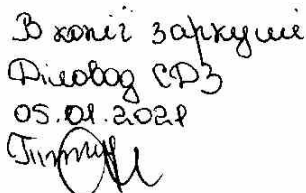 В копії 3 аркуші
Діловод СДЗ
05.01.2021